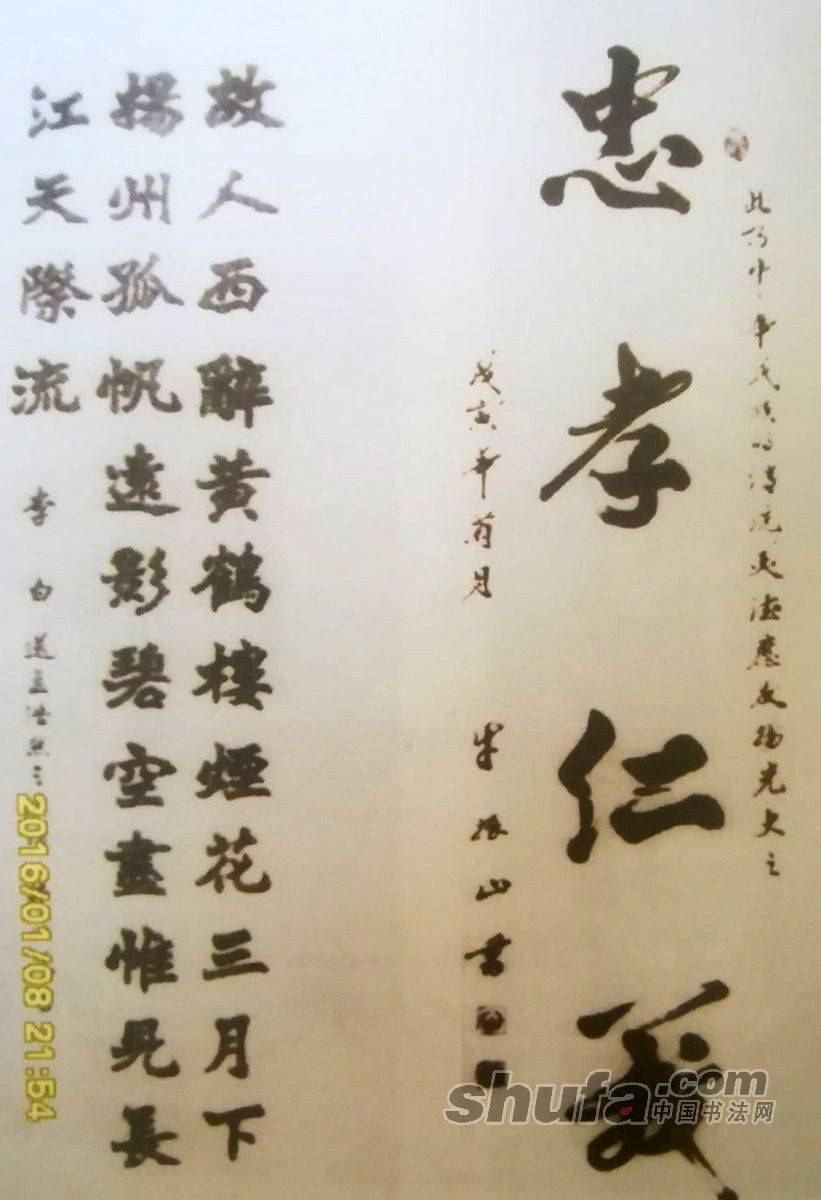 此乃中华民族的傳統美德應發揚光大之
忠孝仁義
戊寅年菊月
振山书
故人西辭黃鶴樓煙花三月下
揚州孤帆遠影碧空盡惟見長
江天際流
李白送孟浩然之
2016/01/08 21:54
shufa.com
中国书法网